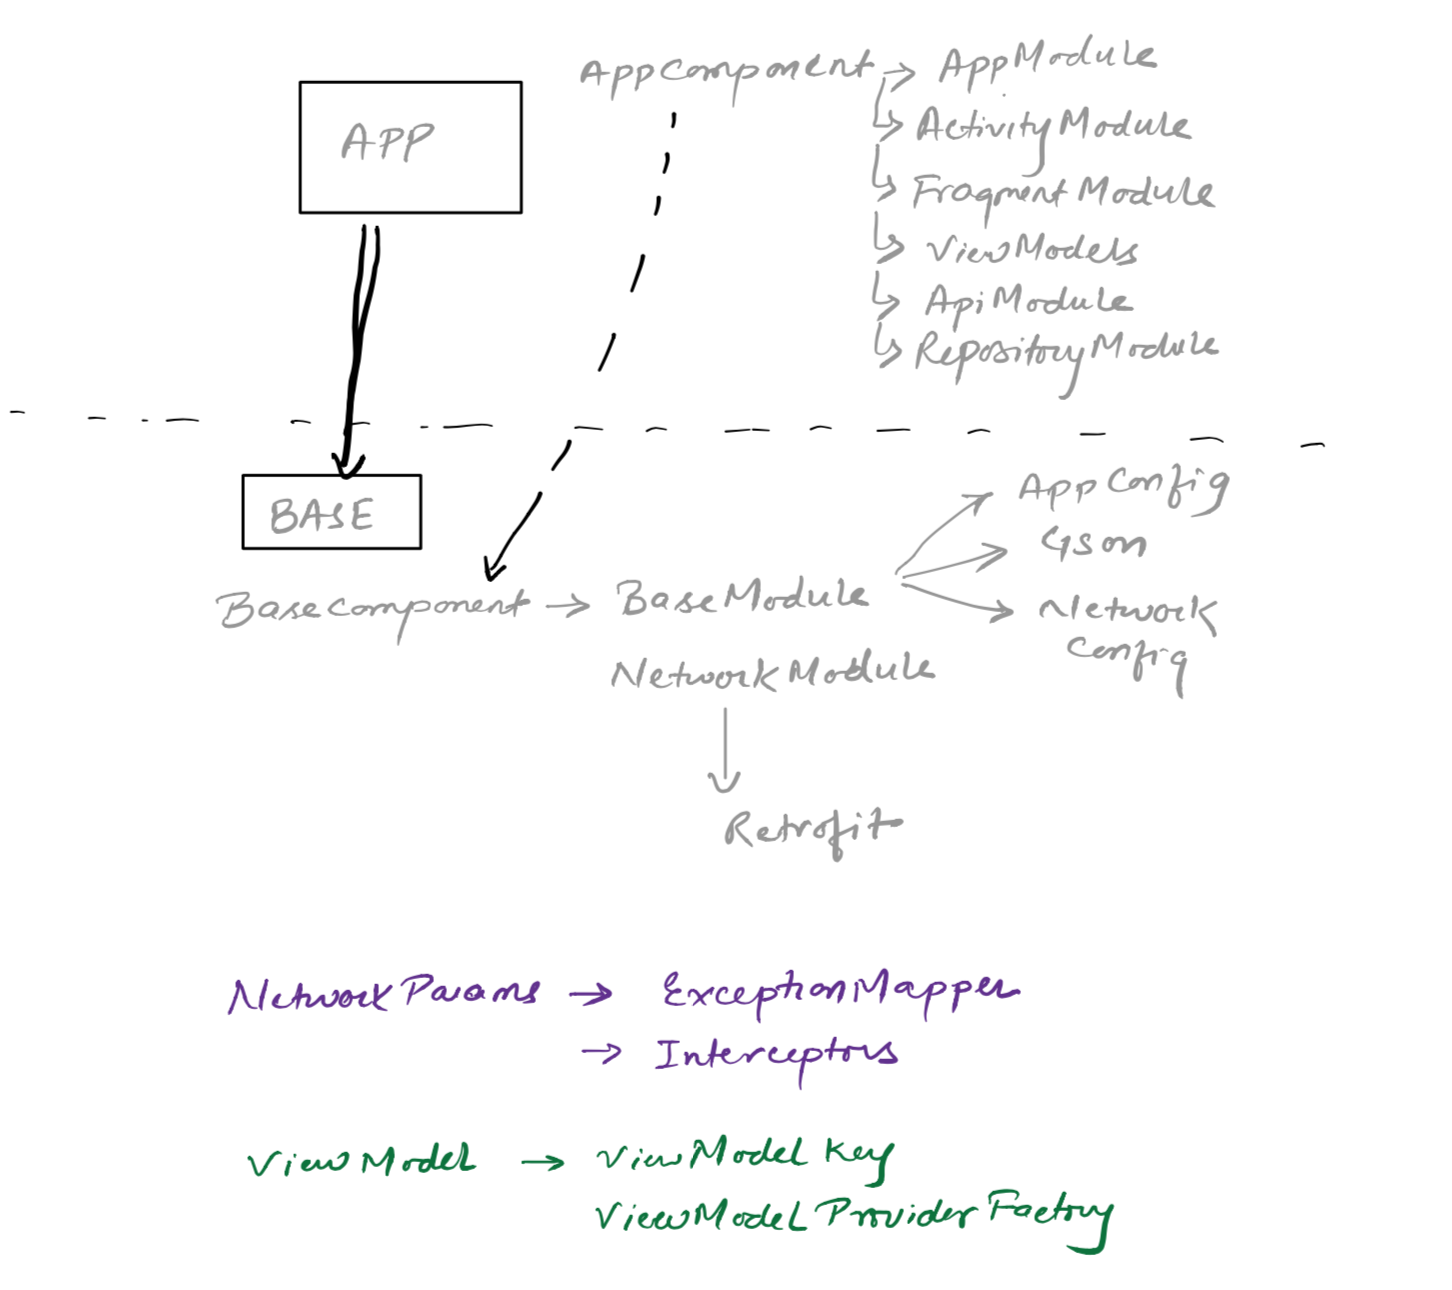 AppComponent → AppModule
APP
ActivityModule
FragmentModule
ViewModels
ApiModule
RepositoryModule
BASE
AppConfig
Gson
BaseComponent → BaseModule
Network
Config
NetworkModule
Retrofit
NetworkParams → ExceptionMapper
→ Interceptors
ViewModel → ViewModel Key
ViewModelProviderFactory